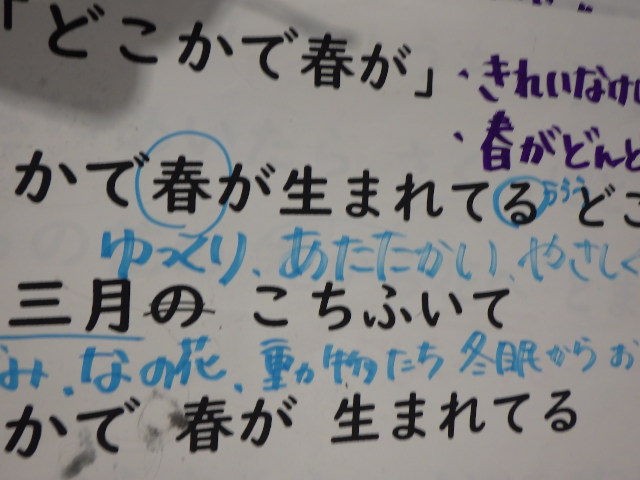 「どこかで春が」
・きれいなけ
・春がどんと
かで春が生まれてる どこ
ゆっくり、あたたかい、やさしく
三月の こちふいて
み、なの花、動物たち 冬眠から お
かで 春が 生まれてる